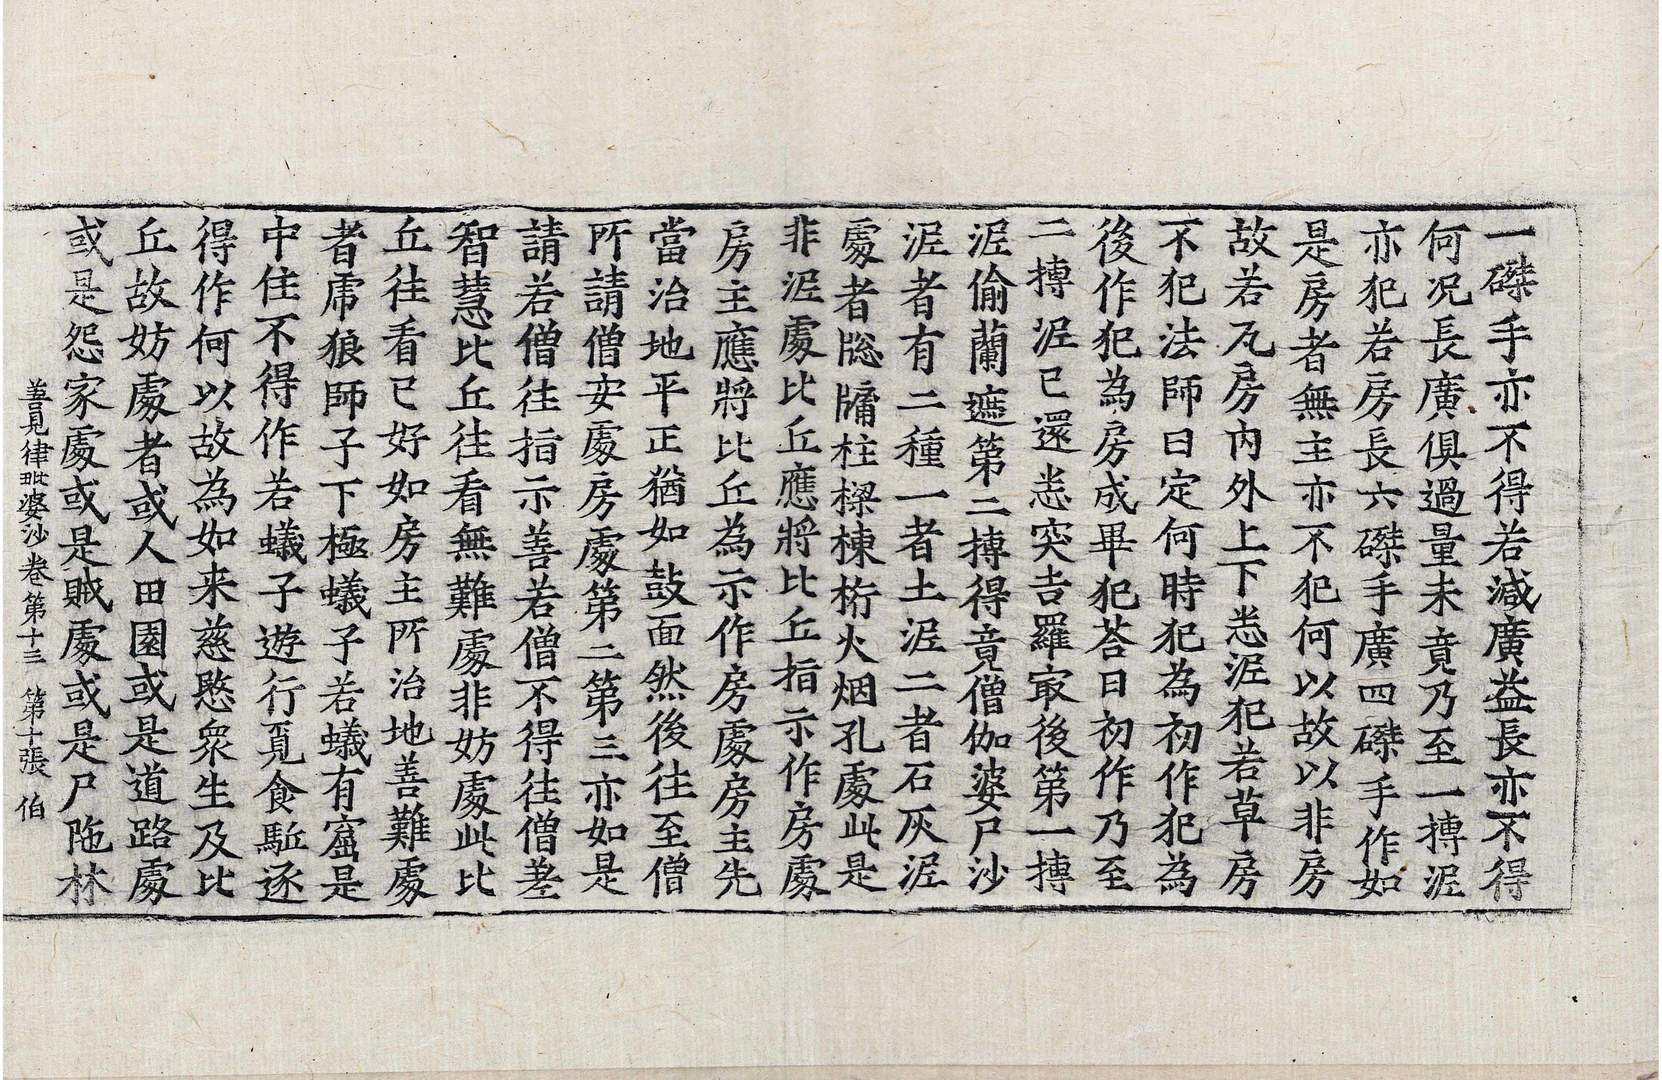 一磔手亦不得若減廣益長亦不得
何况長廣俱過量未竟乃至一摶泥
亦犯若房長六磔手廣四磔手作如
是房者無主亦不犯何以故以非房
故若瓦房内外上下悉泥犯若草房
不犯法師曰定何時犯為初作犯為
後作犯為房成畢犯荅曰初作乃至
二摶泥已還悉突吉羅㝡後第一摶
泥偷蘭遮第二摶得竟僧伽婆尸沙
泥者有二種一者土泥二者石灰泥
處者䆫牖柱樑棟桁火烟孔處此是
非泥處比丘應將比丘指示作房處
房主應將比丘為示作房處房主先
當治地平正猶如鼓面然後往至僧
所請僧安處房處第二第三亦如是
請若僧往指示善若僧不得往僧差
智慧比丘往看無難處非妨處此比
丘往看已好如房主所治地善難處
者虎狼師子下極蟻子若蟻有窟是
中住不得作若蟻子遊行覓食駈逐
得作何以故為如来慈愍衆生及比
丘故妨處者或人田園或是道路處
或是怨家處或是賊處或是尸陁林
善見律毗婆沙卷第十三 第十張 伯